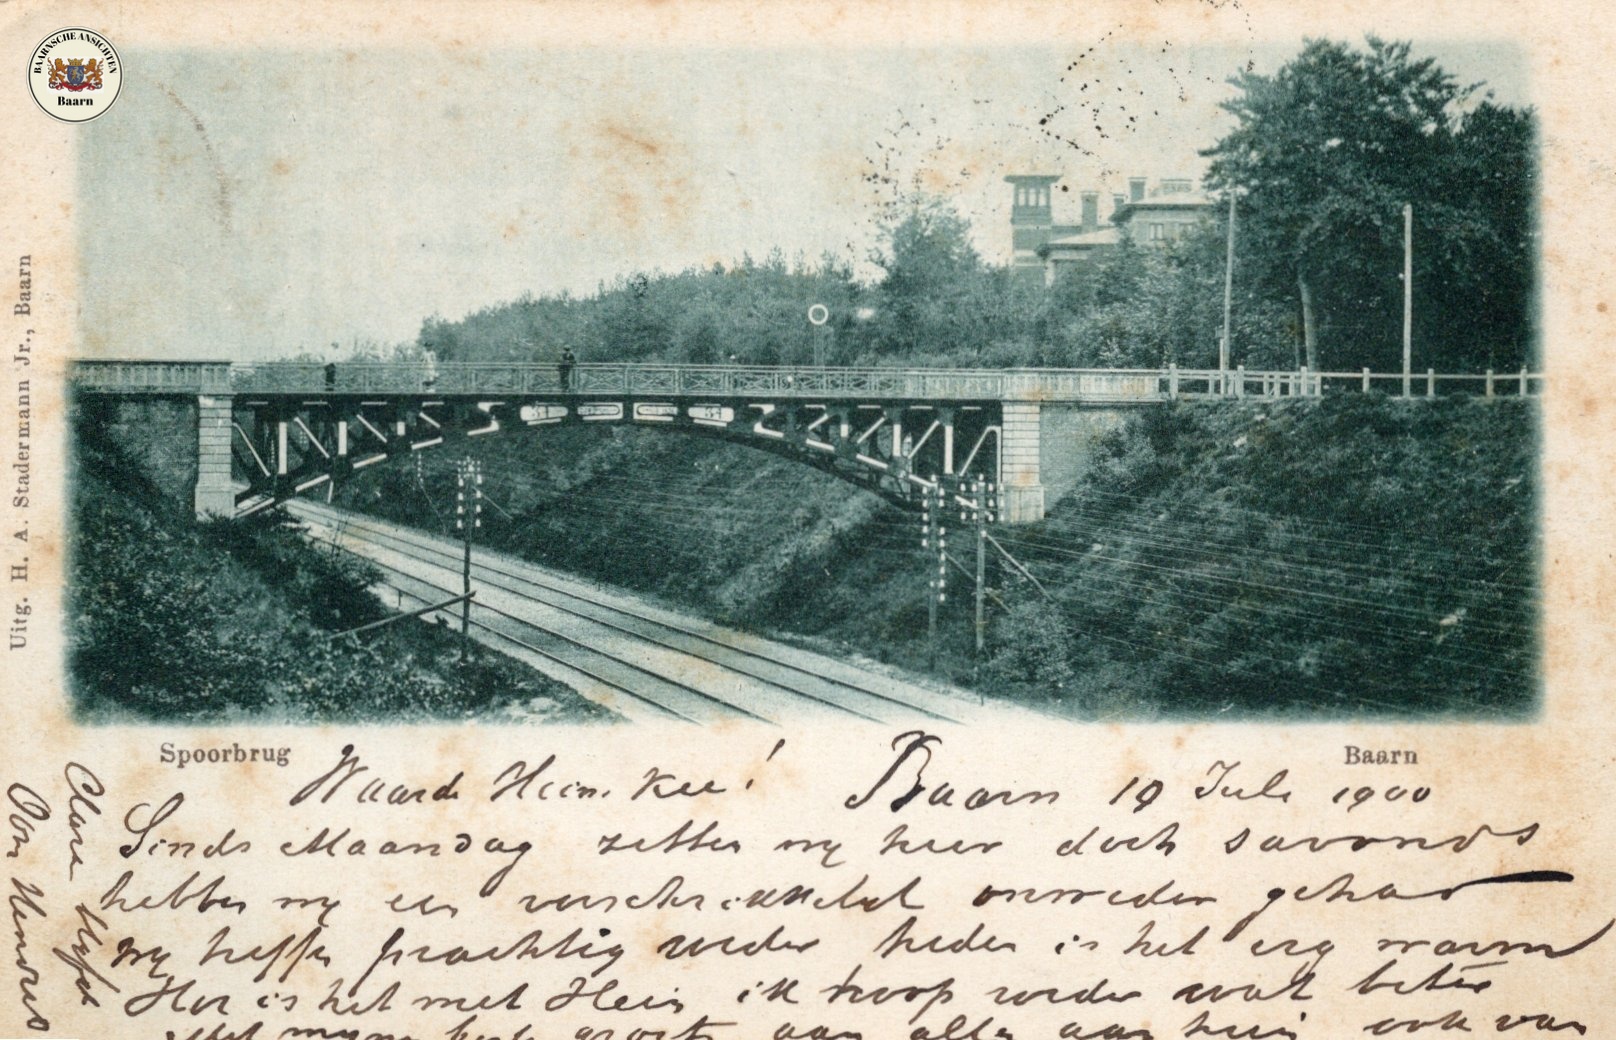 BAARNSCHE ANSICHTEN
Baarn
Uitg. H. A. Stadermann Jr., Baarn
Spoorbrug
Baarn
Waarde Hein. Kee! Baarn 19 Juli 1900
Sinds Maandag zitten wy hier doch savonds
hebben wy een verschrikkelyk onweder gehad
wy treffen prachtig weder heden is het erg warm
Hoe is het met Hein ik hoop weder wat beter
Met myne beste groeten aan allen aan huis ook van
Clara
Oom